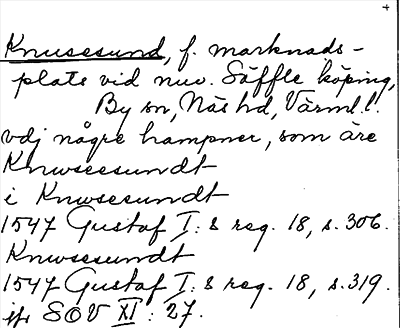 Knusesund, f. marknads-
plats vid nuv. Säffle köping,
By sn, Näs hd, Värml. l.
vdj någre hampner, som äre
Knwsesundt
i Knwsesundt
1547 Gustaf I:s reg. 18, s. 306.
Knwsesundt
1547 Gustaf I:s reg. 18, s. 319.
jfr SOV XI: 27.